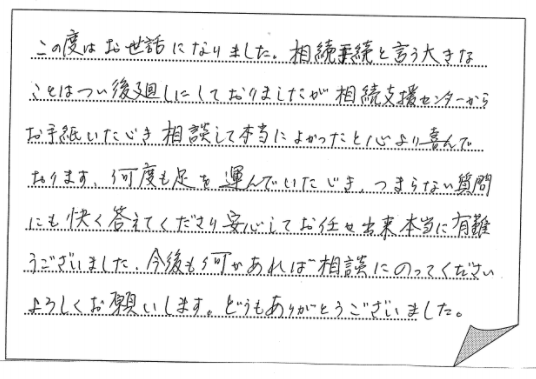 この度はお世話になりました。相続手続と言う大きな
ことはつい後廻しにしておりましたが相続支援センターから
お手紙いただき相談して本当によかったと心より喜んで
おります。何度も足を運んでいただき、つまらない質問
にも快く答えてくださり安心してお任せ出来本当に有難
うございました。今後も何かあれば相談にのってください
よろしくお願いします。どうもありがとうございました。